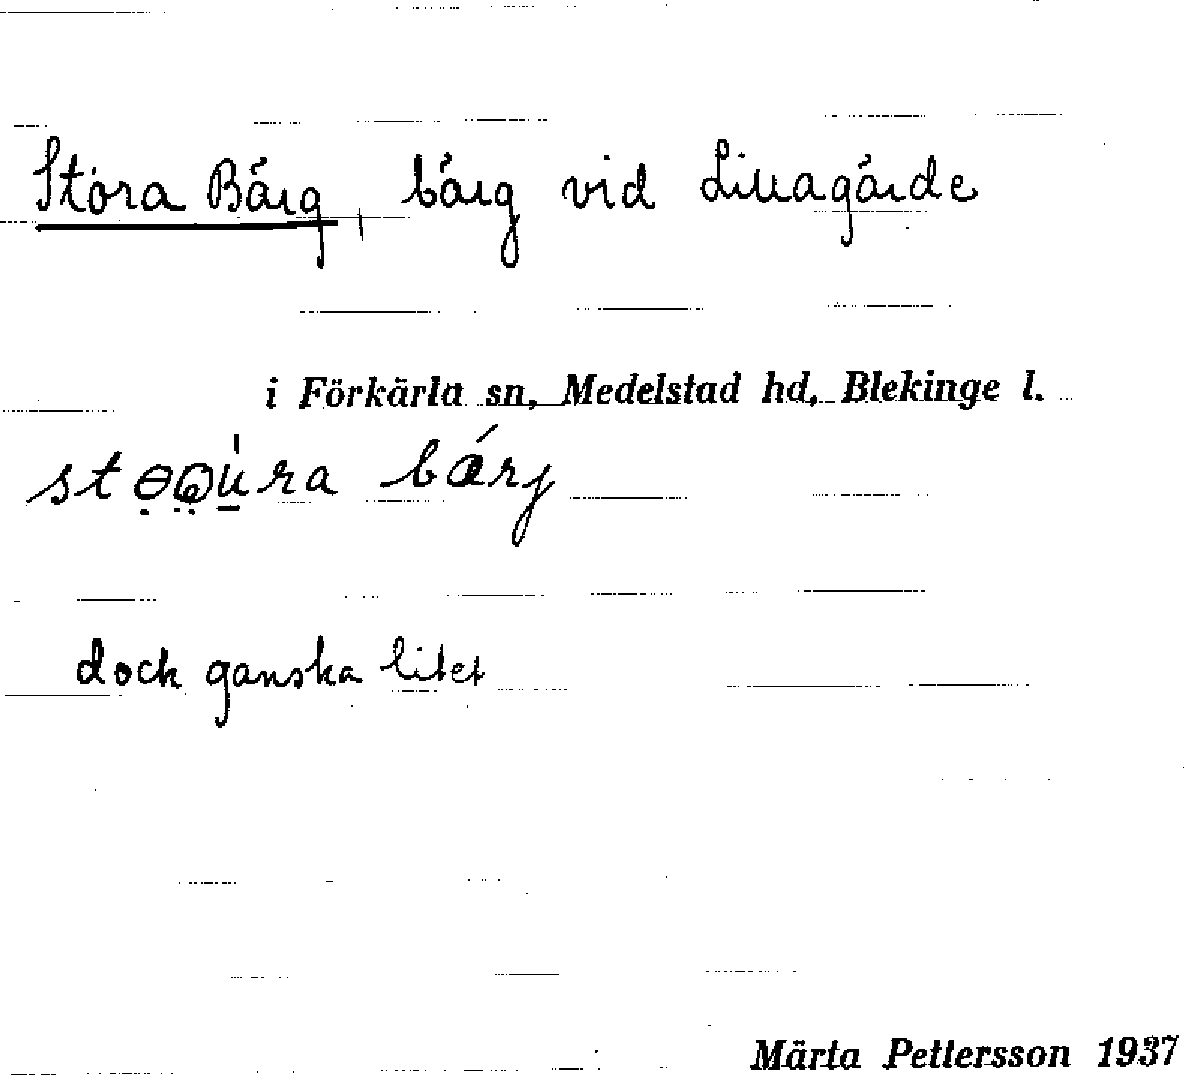 Stora Bärg, bärg vid Lillagärde
i Förkärla sn, Medelstad hd, Blekinge l.
bärj
dock ganska litet
Märta Pettersson 1937